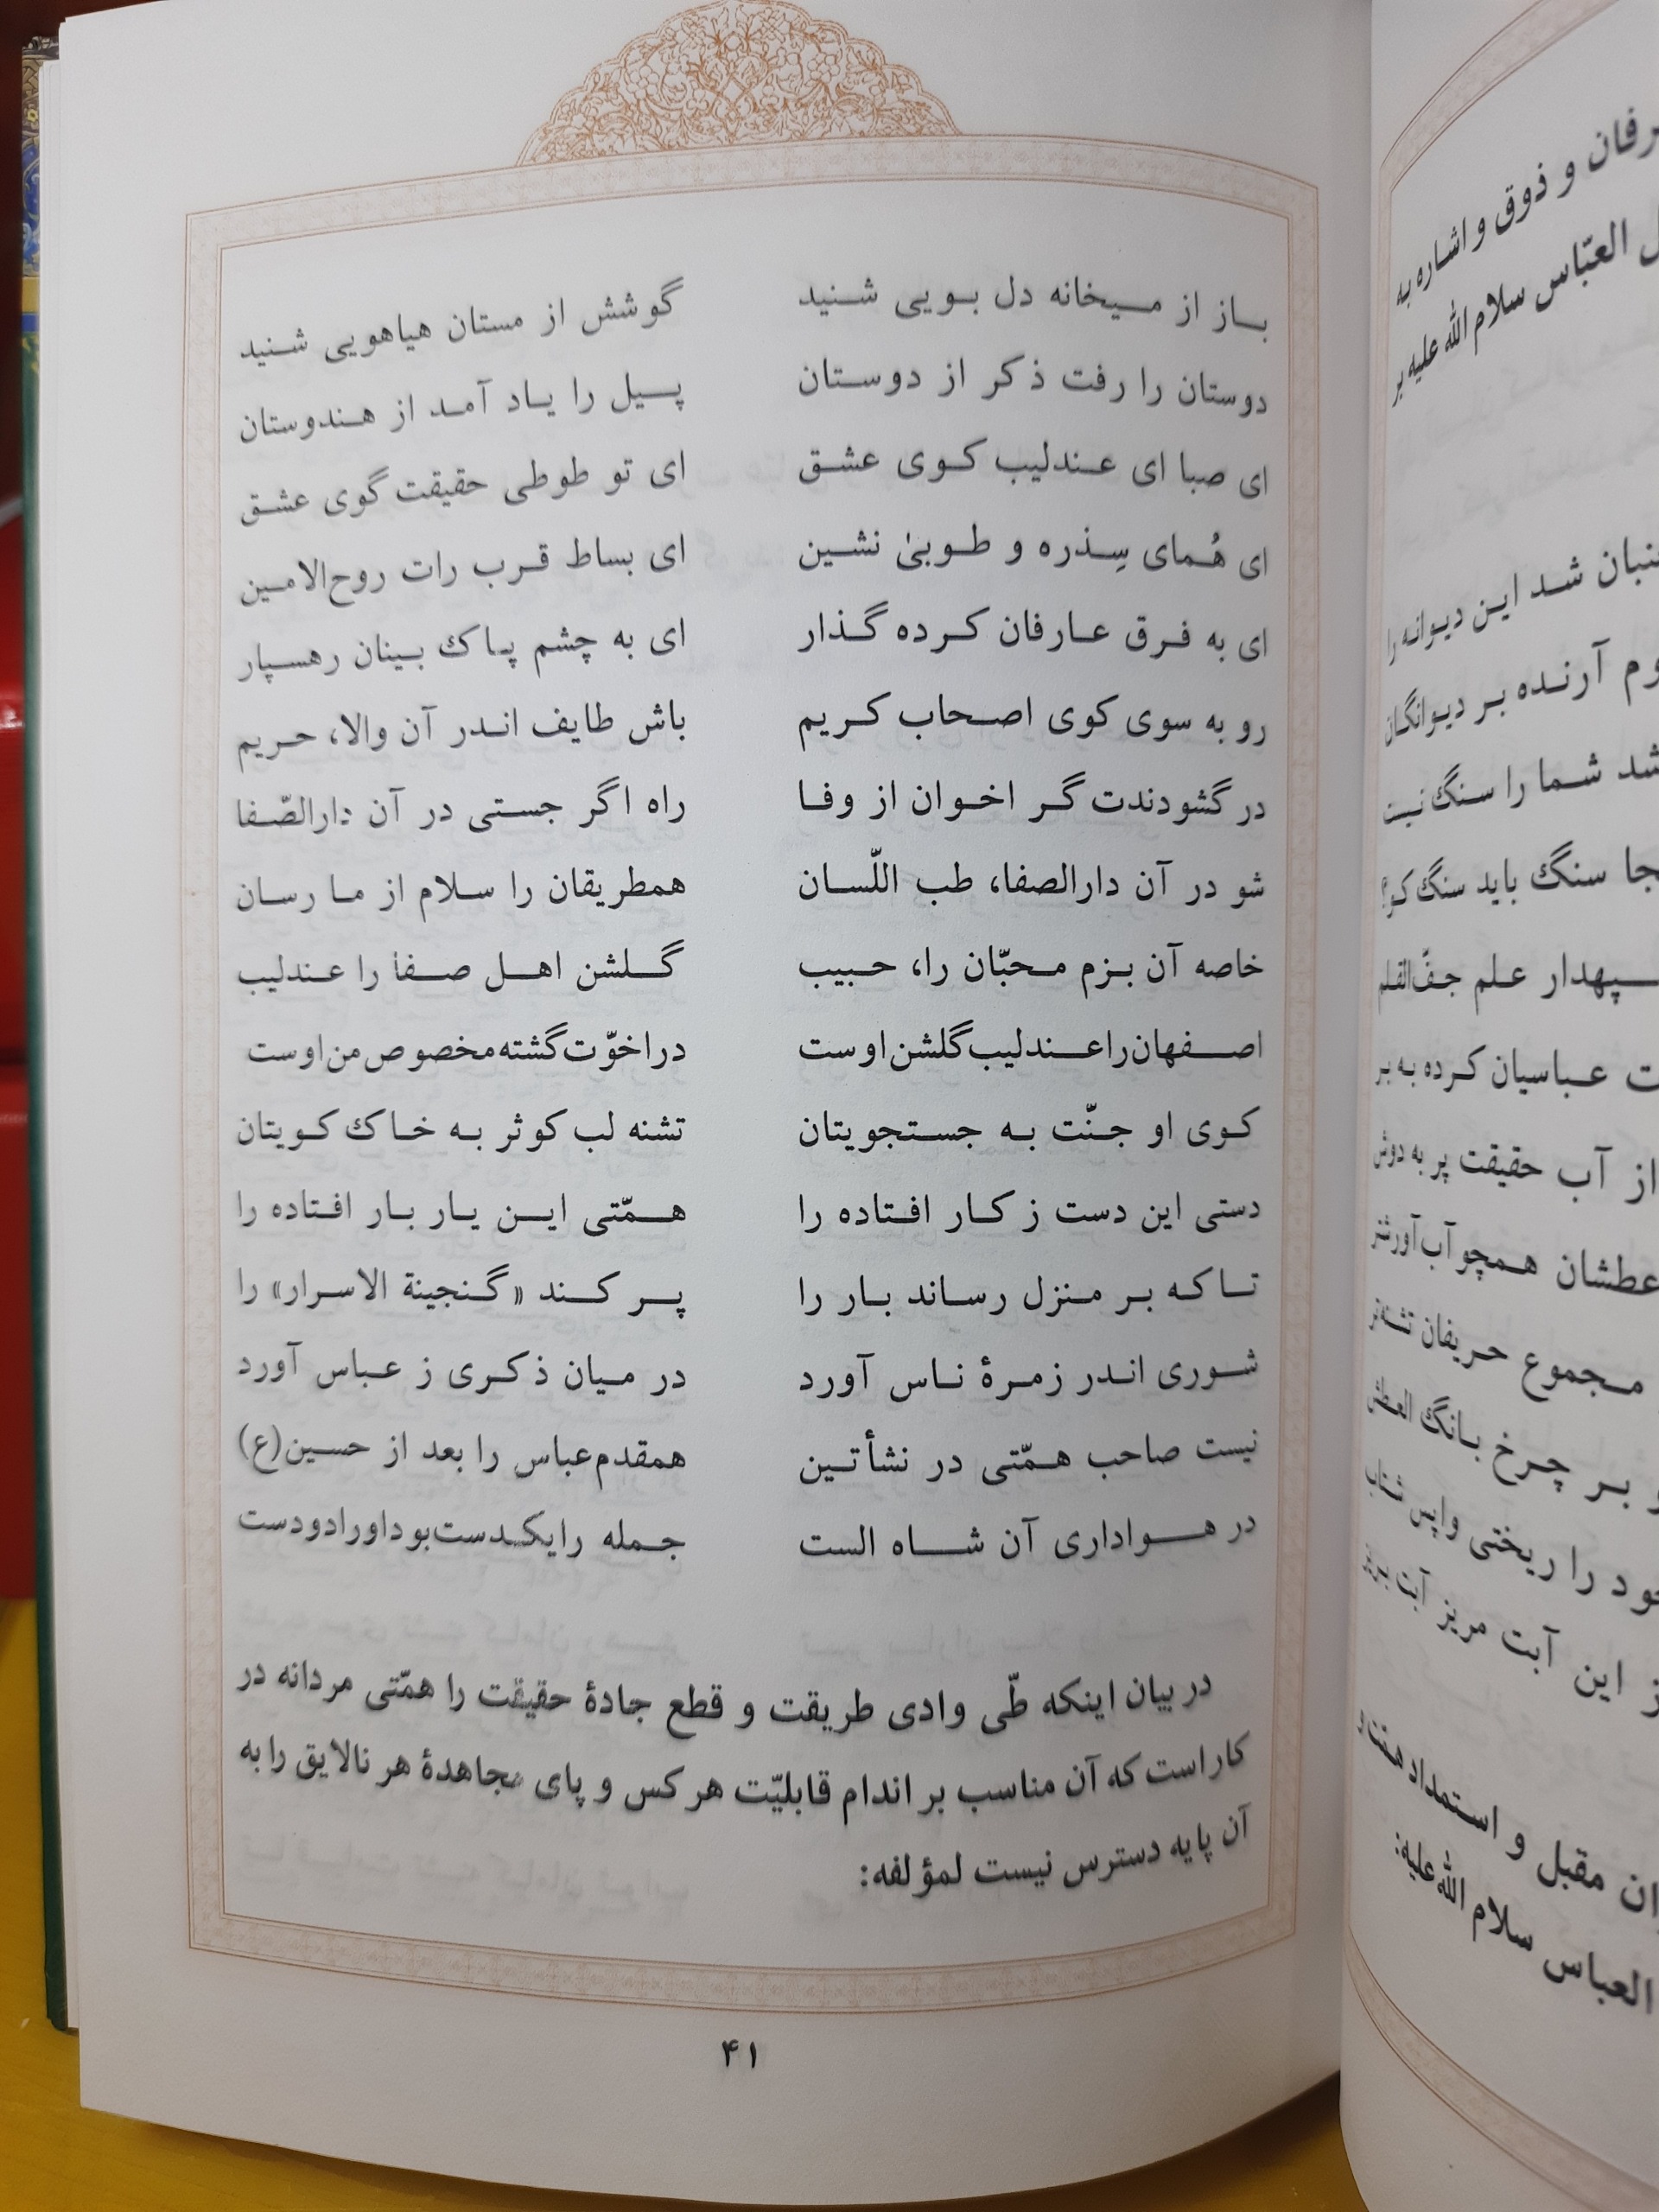 باز از میخانه دل بویی شنید گوشش از مستان هیاهویی شنید
دوستان را رفت ذکر از دوستان پیل را یاد آمد از هندوستان
ای صبا ای عندلیب کوی عشق ای تو طوطی حقیقت گوی عشق
ای هُمای سِذره و طوبیٰ نشین ای بساط قرب رات روح‌الامین
ای به فرق عارفان کرده گذار ای به چشم پاک بینان رهسپار
رو به سوی کوی اصحاب کریم باش طایف اندر آن والا، حریم
در گشودندت گر اخوان از وفا راه اگر جستی در آن دارالصّفا
شو در آن دارالصفا، طب اللّسان همطریقان را سلام از ما رسان
خاصه آن بزم محبّان را، حبیب گلشن اهل صفا را عندلیب
اصفهان را عندلیب گلشن اوست در اخوّت گشته مخصوص من اوست
کوی او جنّت به جستجویتان تشنه لب کوثر به خاک کویتان
دستی این دست ز کار افتاده را همّتی این یار بار افتاده را
تا که بر منزل رساند بار را پر کند «گنجینة الاسرار» را
شوری اندر زمرهٔ ناس آورد در میان ذکری ز عباس آورد
نیست صاحب همّتی در نشأتین همقدم عباس را بعد از حسین(ع)
در هواداری آن شاه الست جمله را یکدست بود او را دو دست
در بیان اینکه طّی وادی طریقت و قطع جادهٔ حقیقت را همّتی مردانه در
کار است که آن مناسب بر اندام قابلیّت هر کس و پای مجاهدهٔ هر نالایق را به
آن پایه دسترس نیست لمؤلفه:
۴۱
رفان و ذوق و اشاره به
العبّاس سلام الله علیه بر
شد این دیوانه را
آرنده بر دیوانگان
شما را سنگ نیست
سنگ باید سنگ کو؟
علم جفّ‌القلم
عباسیان کرده به بر
از آب حقیقت پر به دوش
عطشان همچو آب‌آورتر
مجموع حریفان تشنه‌تر
بر چرخ بانگ العطش
را ریختی واپس شتاب
این آبت مریز آبت بریز
مقبل و استمداد همّت و
العباس سلام الله علیه: